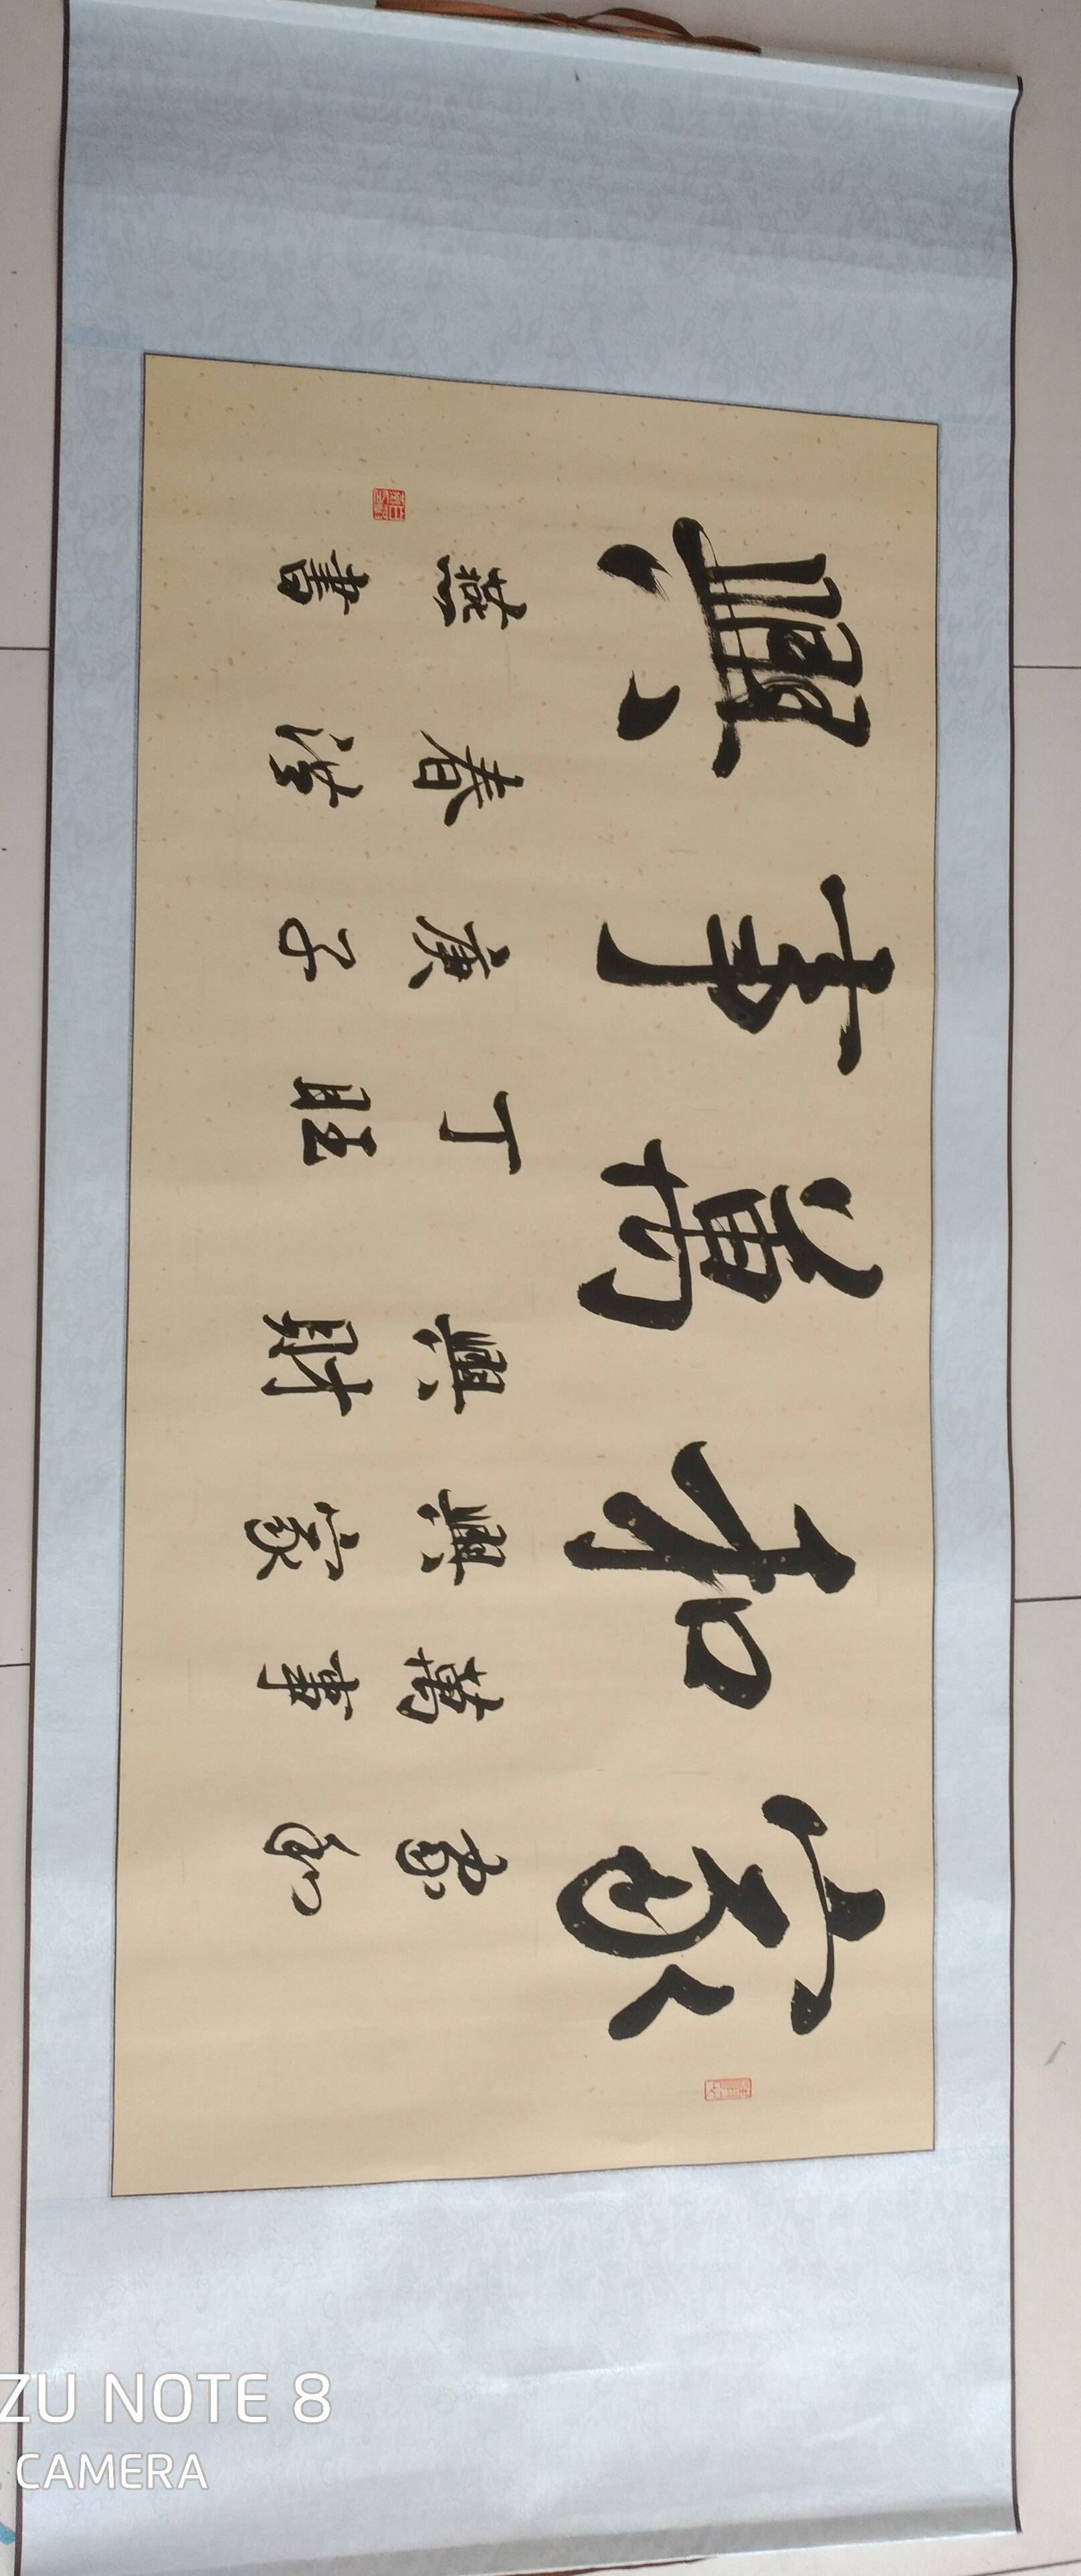 家和萬事興
家和
萬事
興家
興財
丁旺
庚子
春
燕書
ZU NOTE 8
CAMERA